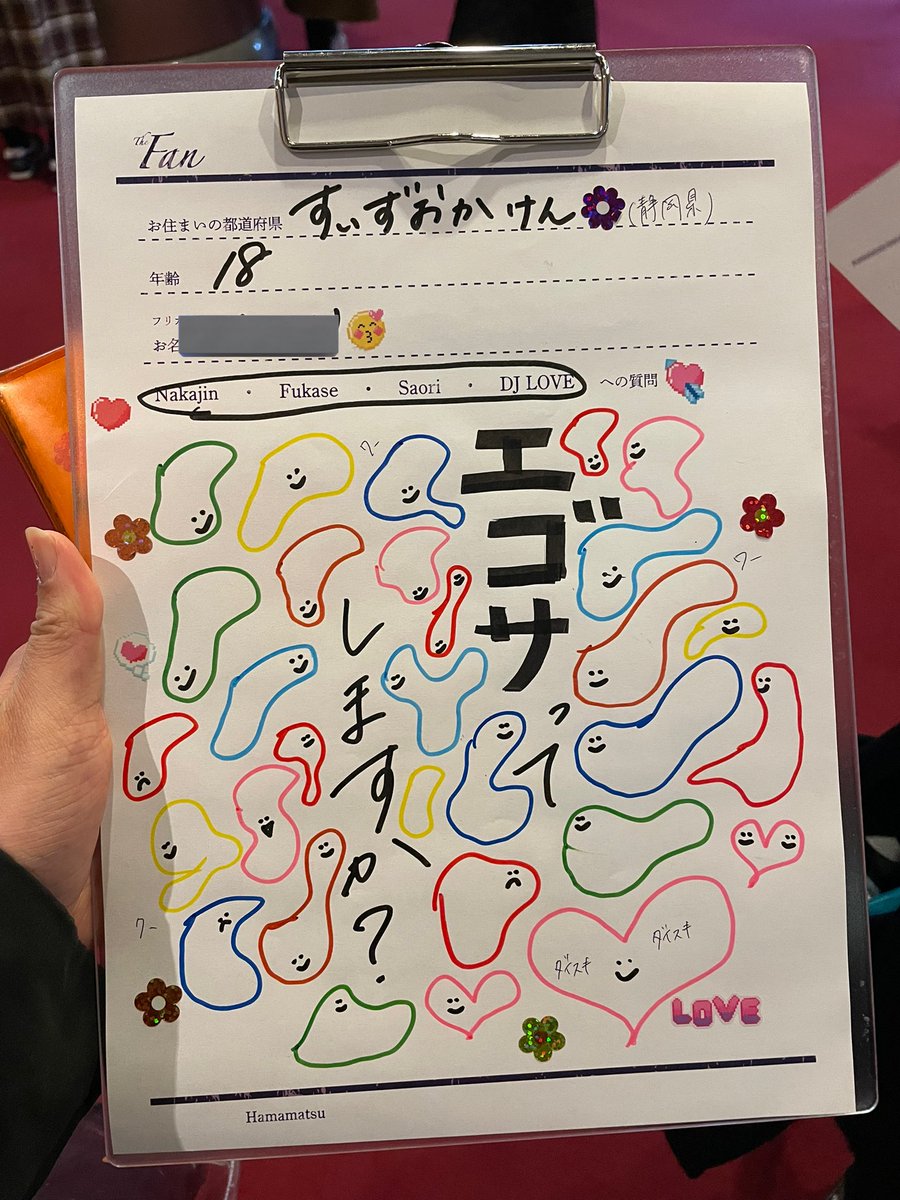 The Fan
お住まいの都道府県 すぃずおかけん (静岡県)
年齢 18
フリ
お名
Nakajin ・ Fukase ・ Saori ・ DJ LOVE への質問
エゴサって
しますか?
ワー
ワー
ワー
ダイスキ
ダイスキ
LOVE
Hamamatsu